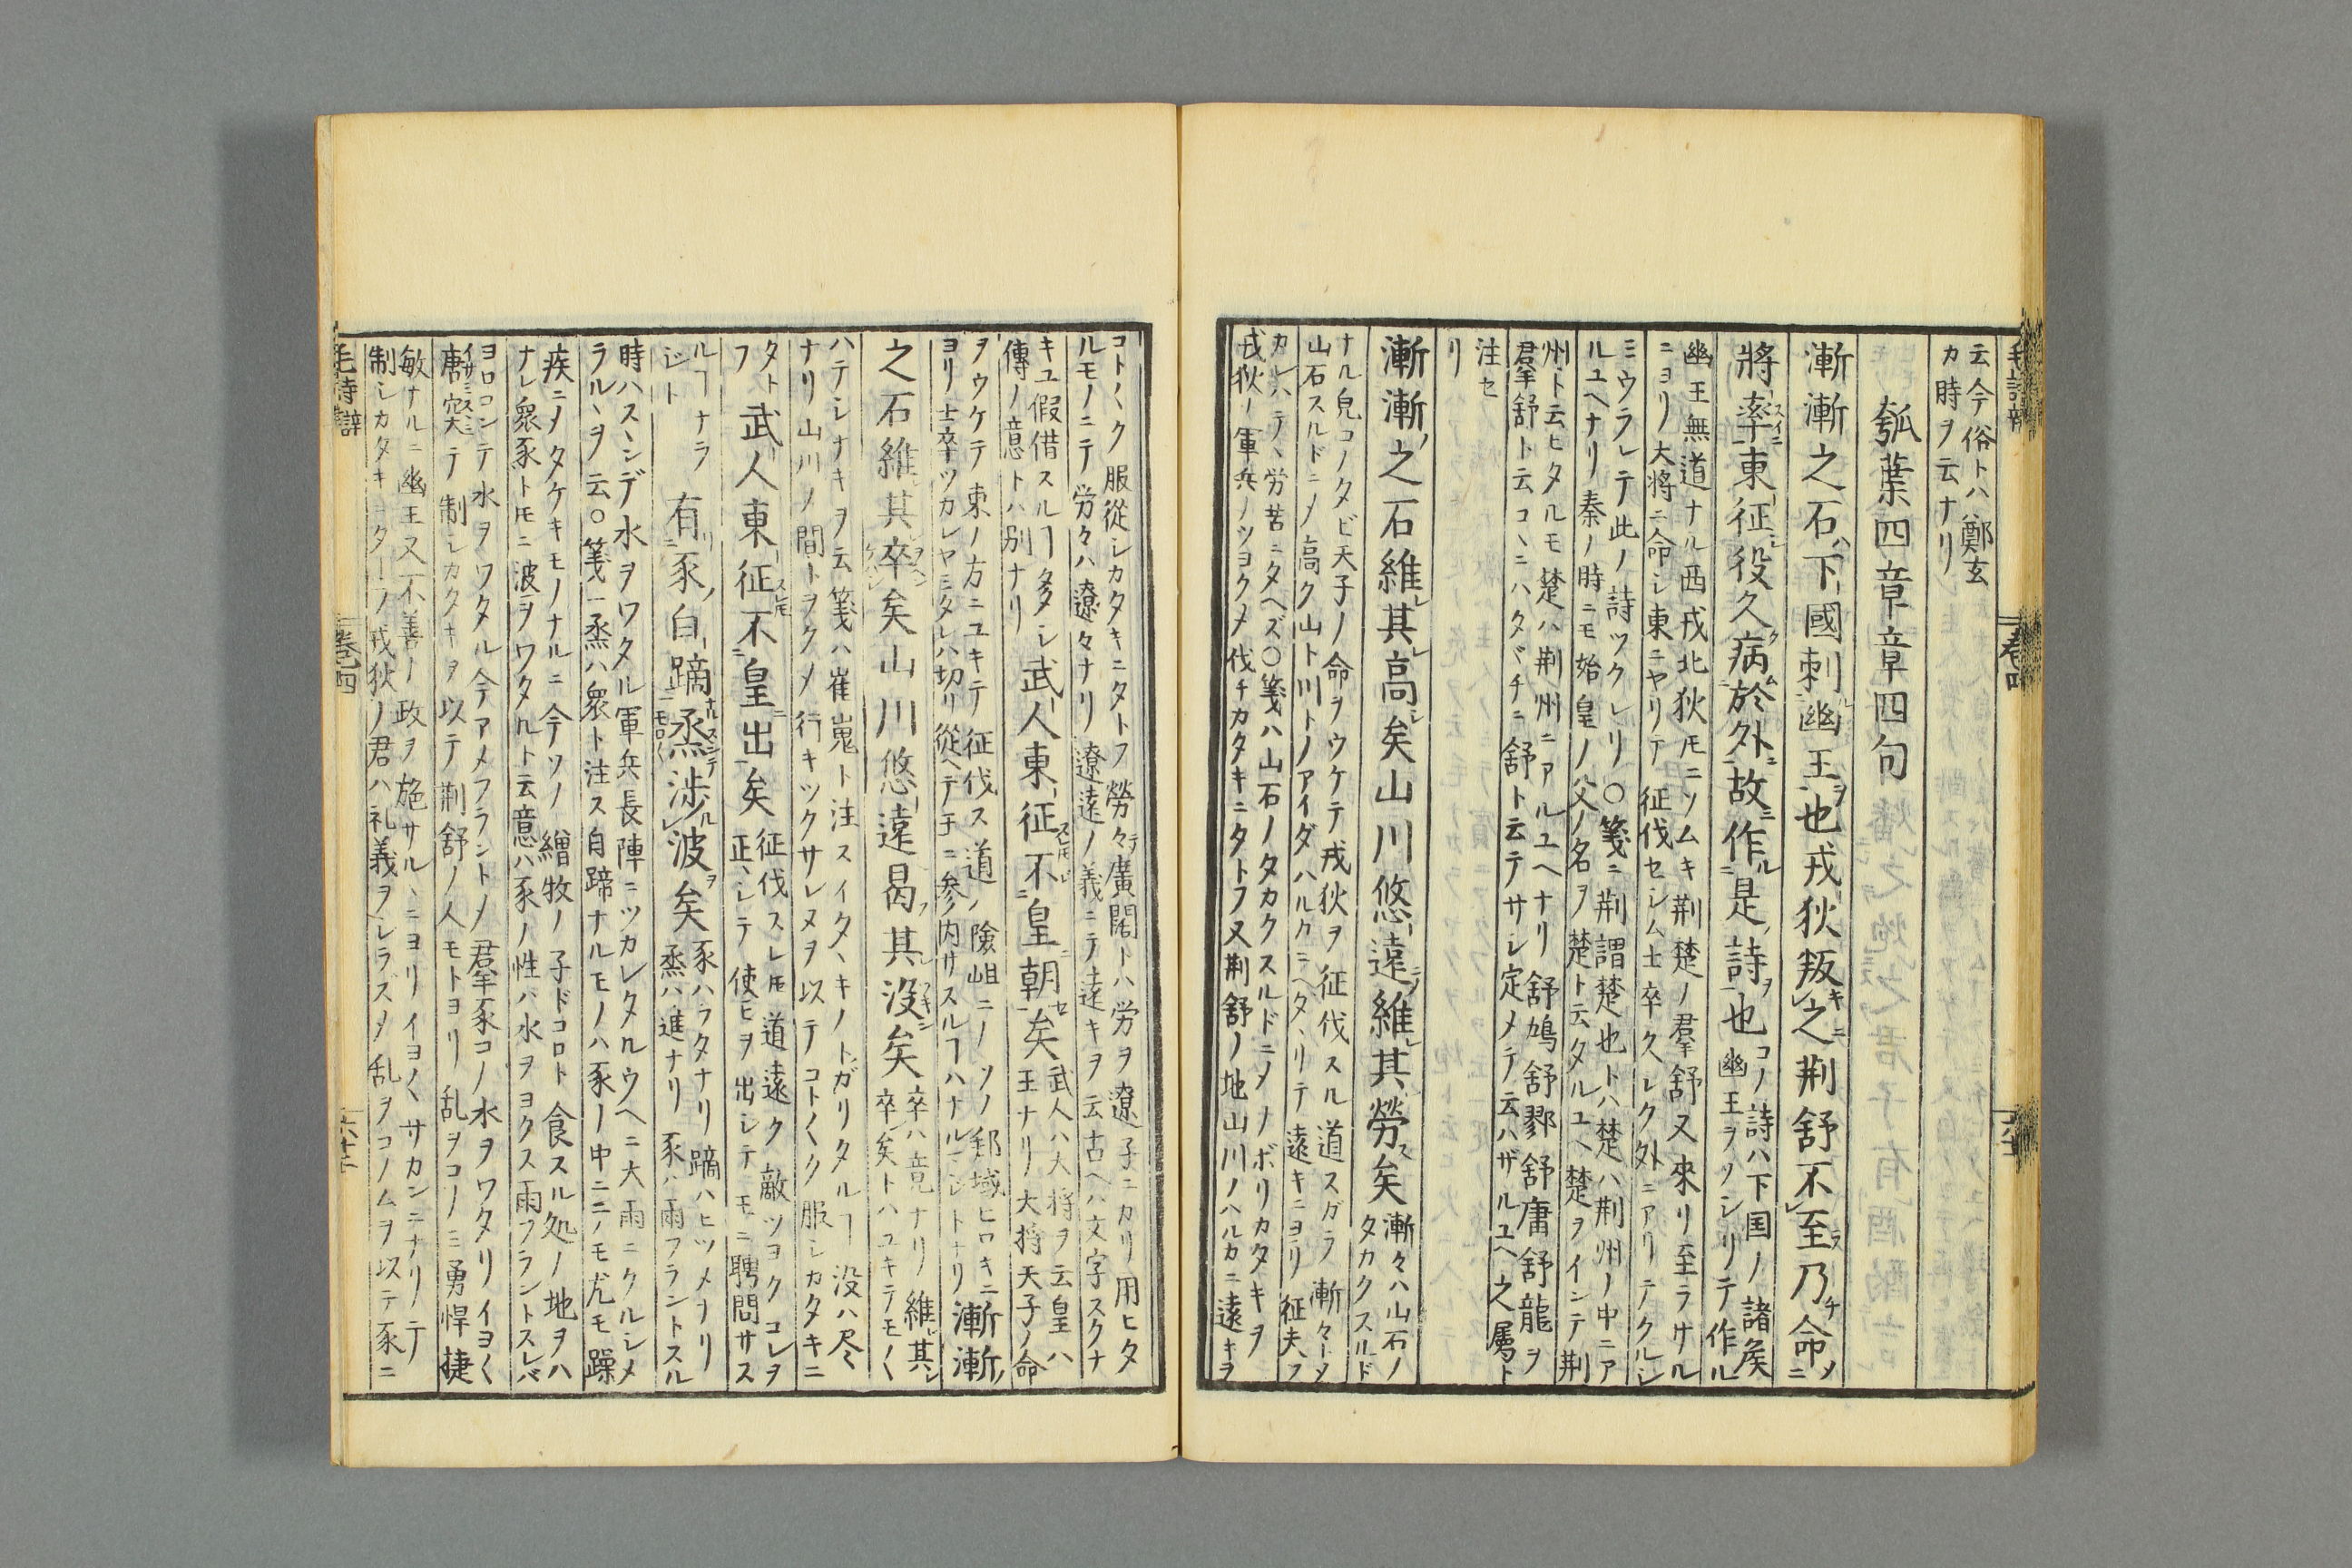 云今俗トハ鄭玄
カ時ヲ云ナリ
瓠葉四章章四句
漸漸之石下國刺幽王也戎狄叛之荆舒不至乃命
將率東征役久病於外故作是詩也
コノ詩ハ下国ノ諸矦
幽王ヲソシリテ作ル
幽王無道ナル西戎北狄モニソムキ荆楚ノ羣舒又來リ至ラサル
ニヨリ大將ニ命シ東ニヤリテ征伐セシム士卒久シク外ニアリテクルシ
ミウラレテ此ノ詩ツクレリ○箋ニ荆謂楚也トハ楚ハ荆州ノ中ニア
ルユヘナリ秦ノ時ニモ始皇ノ父ノ名ヲ楚ト云タルユヘ楚ヲインテ荆
州ト云ヒタルモ楚ハ荆州ニアルユヘナリ舒鳩舒鄝舒庸舒龍ヲ
羣舒ト云コヽニハタヾチニ舒ト云テサシ定メテ云ハザルユヘ之属ト
注セ
リ
漸漸之石維其高矣山川悠遠維其勞矣
漸々ハ山石ノ
タカクスルド
ナル皃コノタビ天子ノ命ヲウケテ戎狄ヲ征伐スル道スガラ漸々ーメ
山石スルドニメ高ク山ト川トノアイダハルカニヘタヽリテ遠キニヨリ征夫フ
カレハテヽ労苦ニタヘズ○箋ハ山石ノタカクスルドニメノボリカタキヲ
戎狄ノ軍兵ノツヨクメ伐チカタキニタトフ又荆舒ノ地山川ノハルカニ遠キヲ
コト〱ク服從シカタキニタトフ勞々廣闊トハ労ヲ遼子ニカリ用ヒタ
ルモノニテ労々ハ遼々ナリ遼遠ノ義ニテ遠キヲ云古ヘハ文字スクナ
キユ假借スルヿ多シ武人東征不皇朝矣
武人ハ大將ヲ云皇ハ
傳ノ意トハ別ナリ
王ナリノ大将天子ノ命
ヲウケテ東ノ方ニユキテ征伐ス道ノ險岨ニノソノ郢域ヒロキニ漸漸
ヨリ士卒ツカレヤミタレハ切リ從ヘテ王ニ参内サスルヿハナルマシトナリ
之石維其卒矣山川悠遠曷其没矣
卒ハ竟ナリ維其
卒矣トハユキテモ〱
ハテシナキヲ云箋ハ崔嵬ト注スイタヽキノトガリタルヿ没ハ尽
ナリ山川ノ間トヲクメ行キツクサレヌヲ以テコト〱ク服シカタキニ
タト武人東征不皇出矣
征伐スレ𪜈道遠ク敵ツヨクコレヲ
フ
正シテ使ヒヲ出シテモニ聘問サス
ルヿナラ有豕白蹢烝渉波矣
豕ハブタナリ蹢ハヒツメナリ
ジト
烝ハ進ナリ豕ハ雨フラントスル
時ハスヽンデ水ヲワタル軍兵長陣ニツカレタルウヘニ大雨ニクルシメ
ラルヽヲ云○箋ー烝ハ衆ト注ス自蹄ナルモノハ豕ノ中ニニノモ尤モ躁
疾ニノタケキモノナルニ今ソノ繒牧ノ子ドコロト食スル処ノ地ヲハ
ナレ衆豕トモニ波ヲワタルト云意ハ豕ノ性ハ水ヲヨクス雨フラントスレバ
ヨロコンテ水ヲワタル今アメフラントメ羣豕コノ水ヲワタリイヨ〱
唐突テ制シカタキヲ以テ荆舒ノ人モトヨリ乱ヲコノミ勇悍捷
敏ナルニ幽王又不善ノ政ヲ施サルヽニヨリイヨ〱サカンニナリノテ
制シカタキニタトフ戎狄ノ君ハ礼義ヲシラズメ乱ヲコノムヲ以テ豕ニ
毛詩辭 卷四 六十二